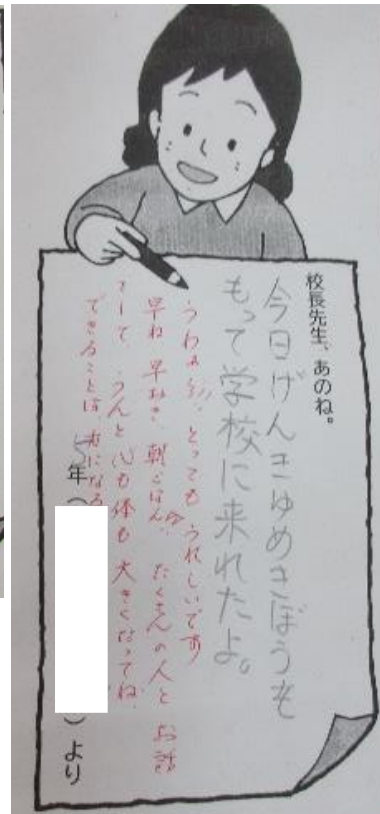 校長先生、あのね。
今日げんきゆめきぼうを
もって学校に来れたよ。
とっても うれしいです
早ね 早おき 朝ごはん、たくさんの人と お話
うんと 心も体も 大きくなってね
できることは
5年（
）より